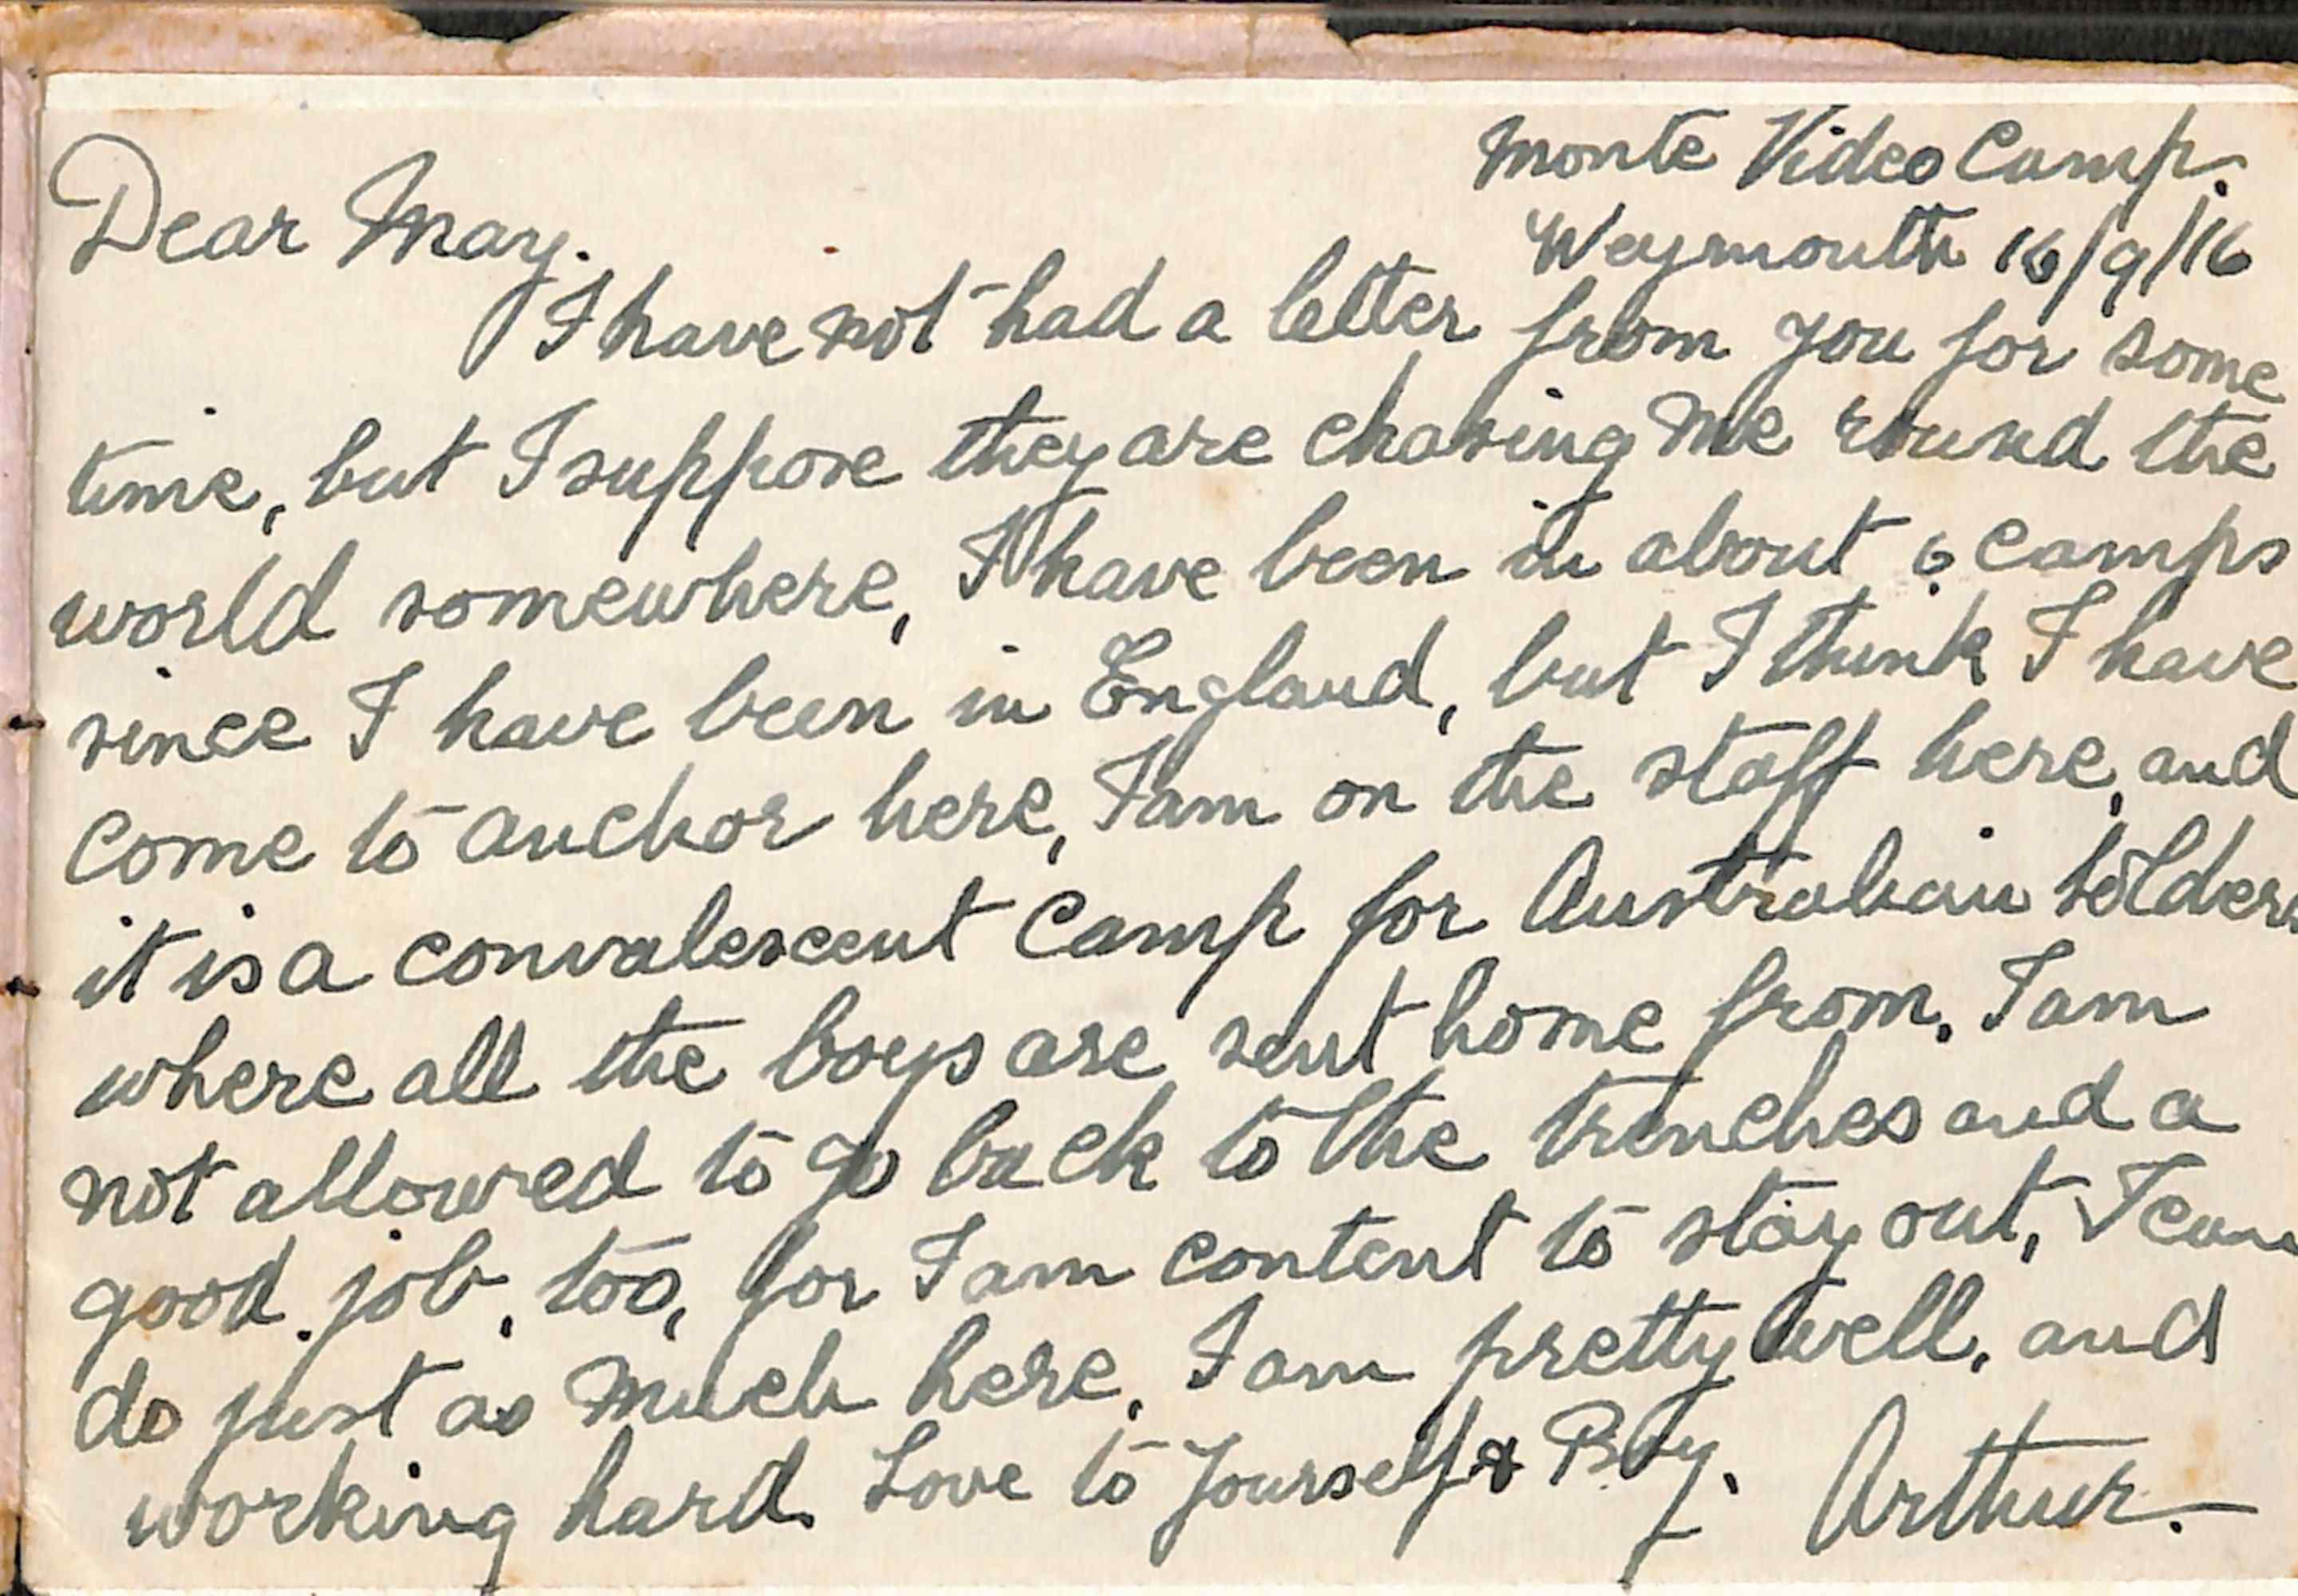 Monte Video Camp.
Weymouth 16/9/16
Dear May.
I have not had a letter from you for some
time, but I suppose they are chasing me round the
world somewhere, I have been in about 6 camps
since I have been in England, but I think I have
come to anchor here, I am on the staff here, and
it is a convalescent Camp for Australian Solders
where all the boys are sent home from. I am
not allowed to go back to the trenches and a
good job, too, for I am content to stay out, I can
do just as much here, I am pretty well, and
working hard. Love to Yourself & Boy.
Arthur.